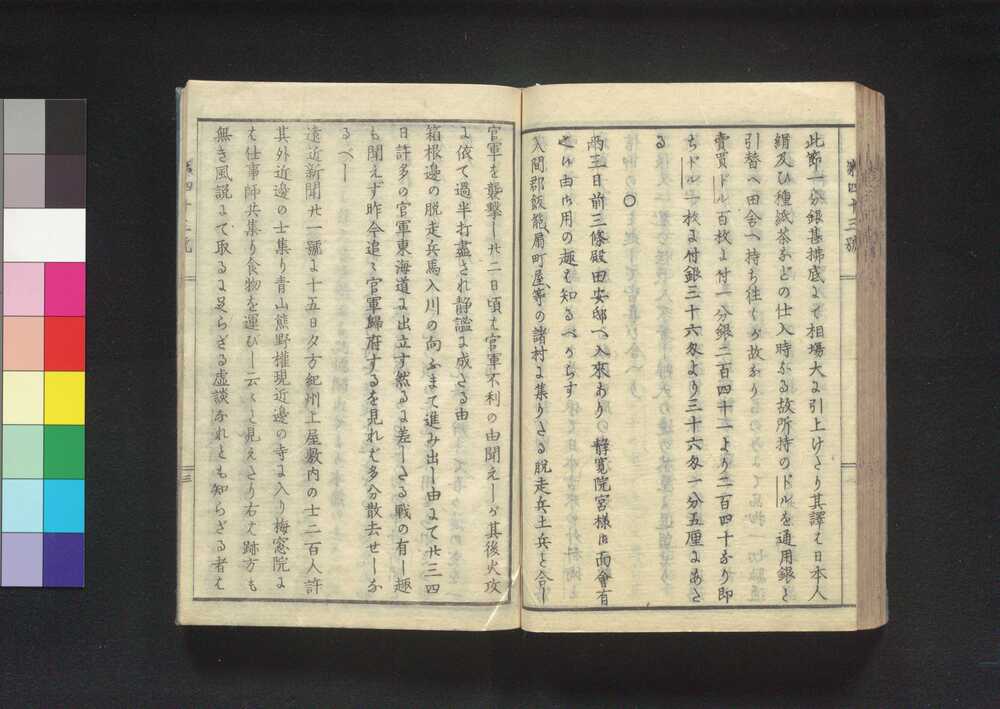 第四十三號
此節一分銀甚拂底よて相場大よ引上けたり其譯は日本人
絹及ひ種紙茶などの仕入時なる故所持のドルを通用銀と
引替へ田舍へ持ち往くが故なり
賣買ドル百枚よ付一分銀二百四十一より二百四十なり即
ちドル一枚よ付銀三十六匁より三十六匁一分五厘にあた
る
○
兩三日前三條殿田安邸へ入來あり 靜寬院宮樣御面會有
之候由御用の趣は知るべからず
入間郡飯能扇町屋等の諸村よ集りたる脱走兵土兵と合し
官軍を襲擊し廿二日頃は官軍不利の由聞えしが其後火攻
よ依て過半打盡され靜謐よ成たる由
箱根邊の脱走兵馬入川の向ふまて進み出し由よて廿三四
日許多の官軍東海道よ出立す然るよ差したる戰の有し趣
も聞えず昨今追々官軍歸府するを見れば多分散去せしな
るべし
遠近新聞廿一號よ十五日夕方紀州上屋敷内の士二百人許
其外近邊の士集り青山熊野權現近邊の寺よ入り梅窓院よ
は仕事師共集り食物を運びし云々と見えたり右は跡方も
無き風説よて取るよ足らざる虛談なれとも知らざる者は
三